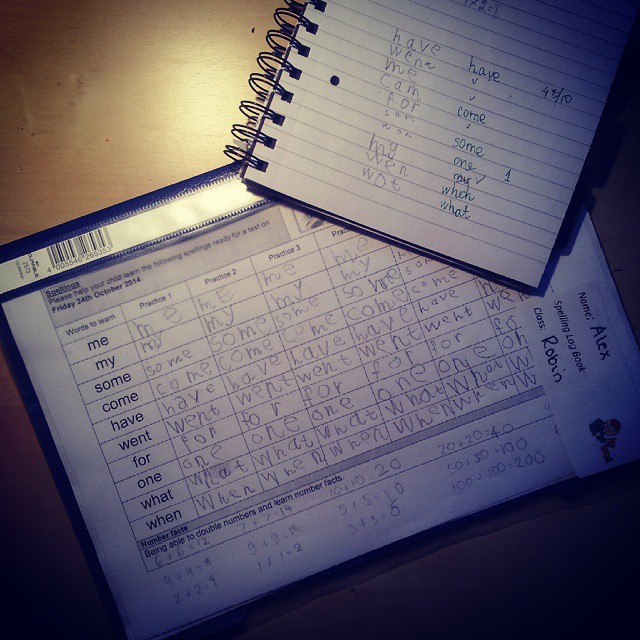 have
went
me
can
for
som
won
my
wen
wot
have
come
some
one
my 1
when
what
Spellings
Please help your child learn the following spellings ready for a test on
Friday 24th October 2014
Words to learn Practice 1 Practice 2 Practice 3
me me me me me
my my my my my
some some some some some so
come come come come come come
have have have have have have
went went went went went went
for for for for for for fo
one one one one one one on
what what what what what what w
when when when when when when w
Number facts
Being able to double numbers and learn number facts.
6+6=12 7+7=14 10+10=20 20+20=40
4+4=8 9+9=18 5+5=10 50+50=100
2+2=4 1+1=2 3+3=6 100+100=200
Name: Alex
Spelling Log Book
Class: Robin